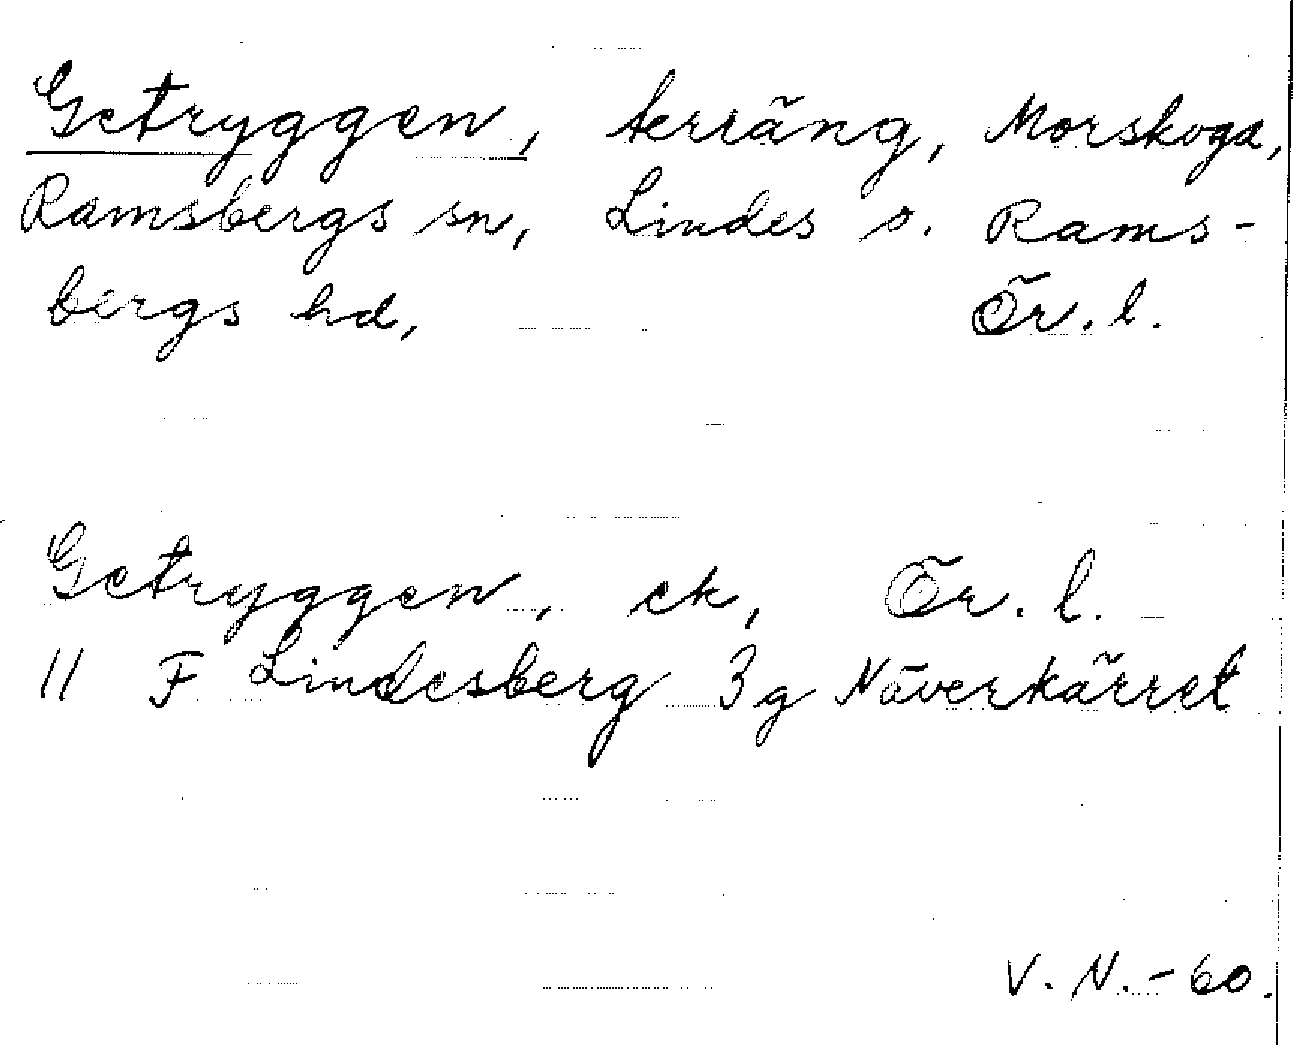 Getryggen, terräng, Morskoga,
Ramsbergs sn, Lindes o. Rams-
bergs hd, Ör. l.
Getryggen, ek, Ör. l.
11 F Lindesberg 3g Näverkärret
V. N. - 60.